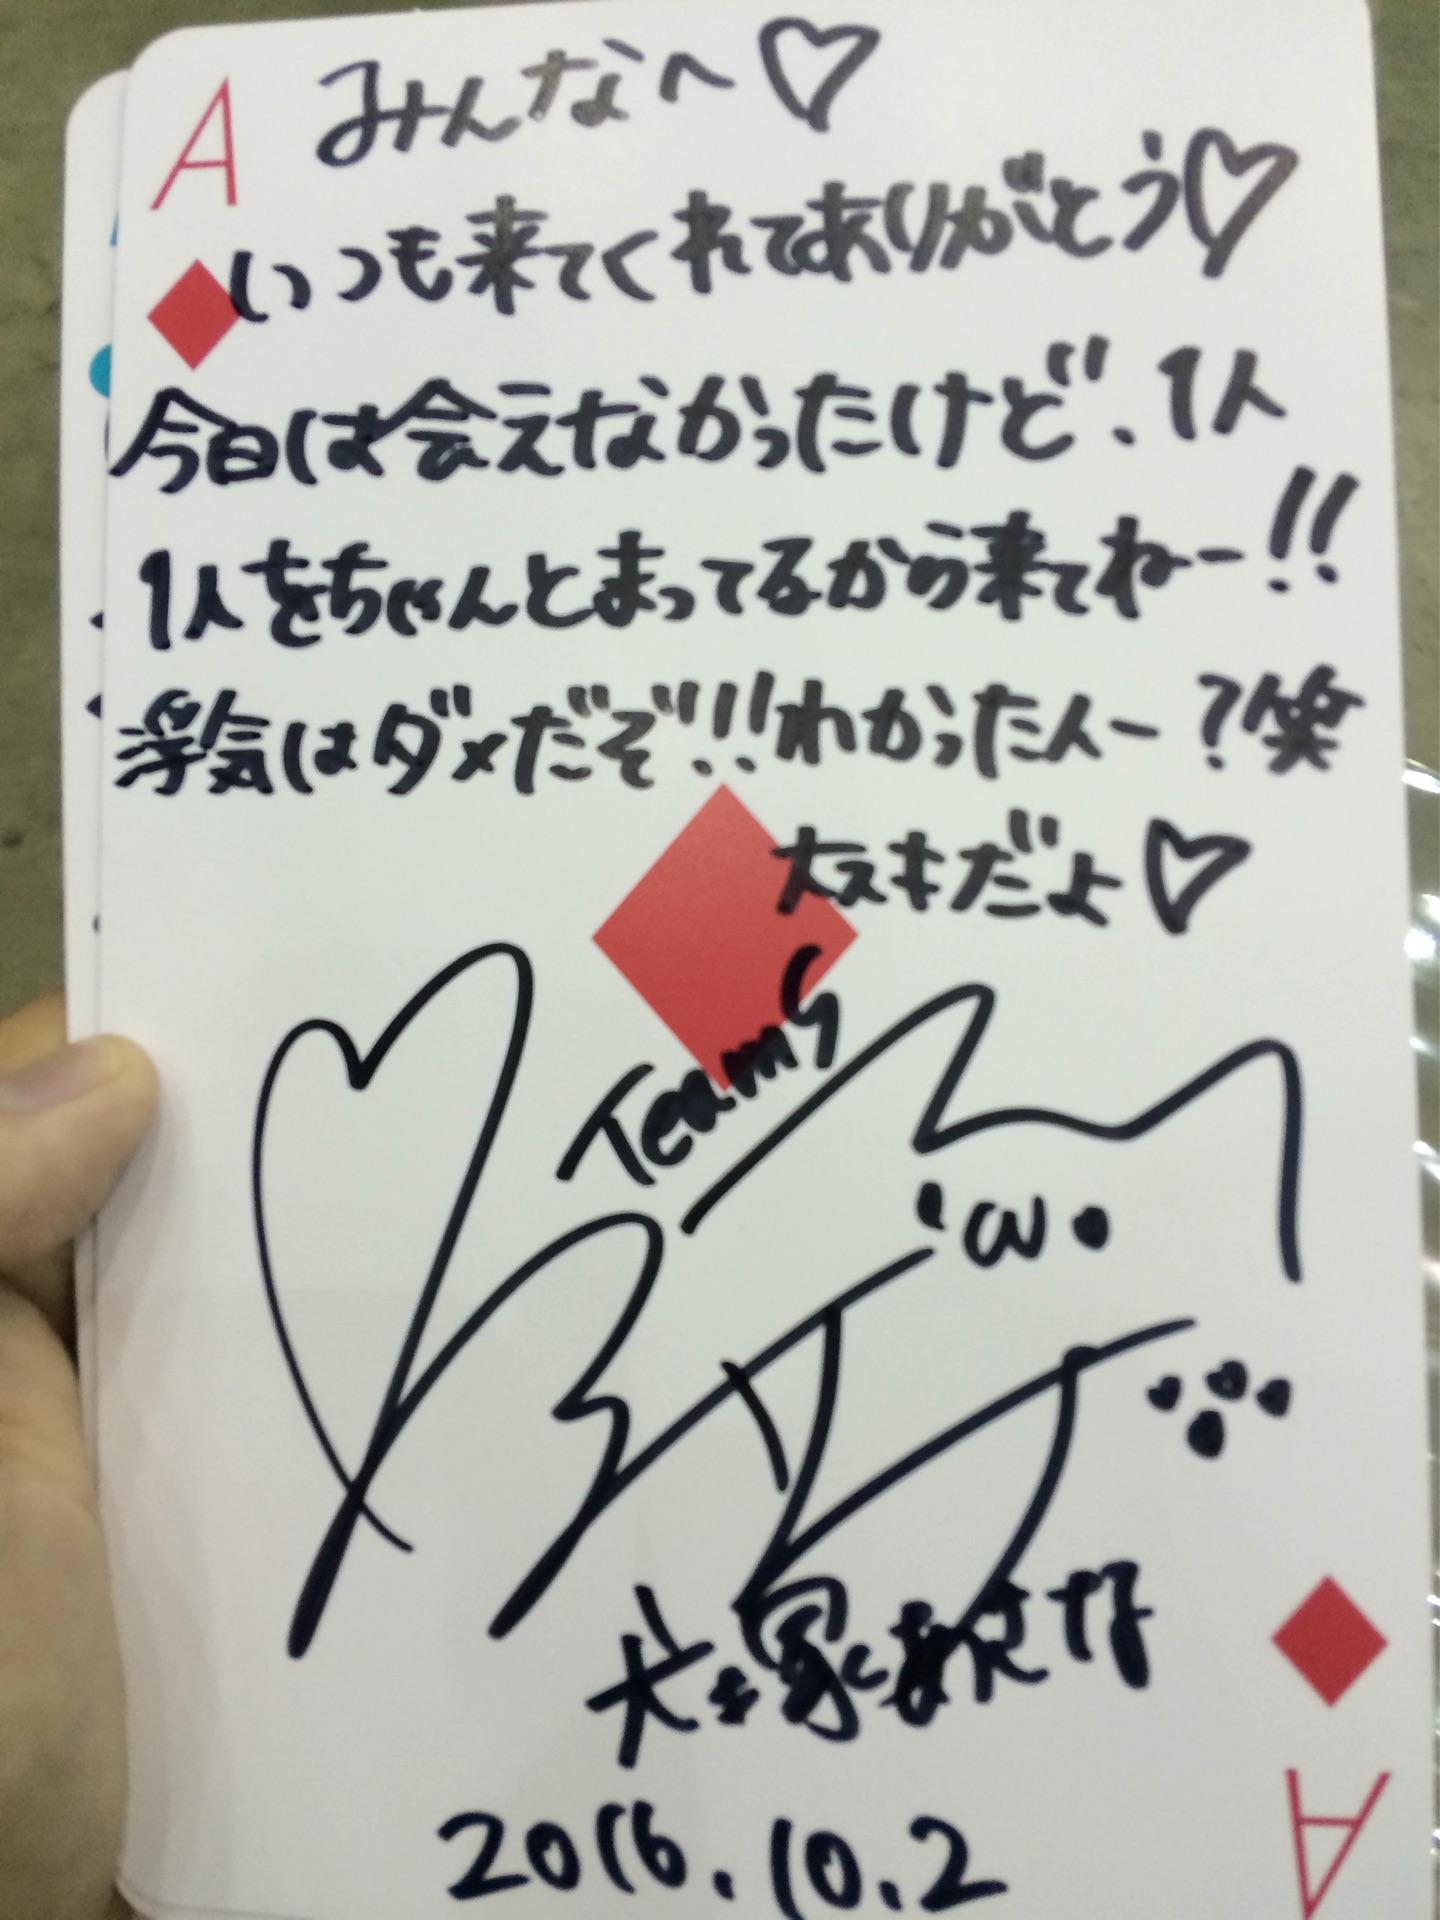 A
みんなへ♡
いつも来てくれてありがとう♡
今日は会えなかったけど、1人
1人をちゃんとまってるから来てねー!!
浮気はダメだぞ!!!わかった人ー?笑
大スキだよ♡
Team S
犬塚あさな
2016.10.2
A